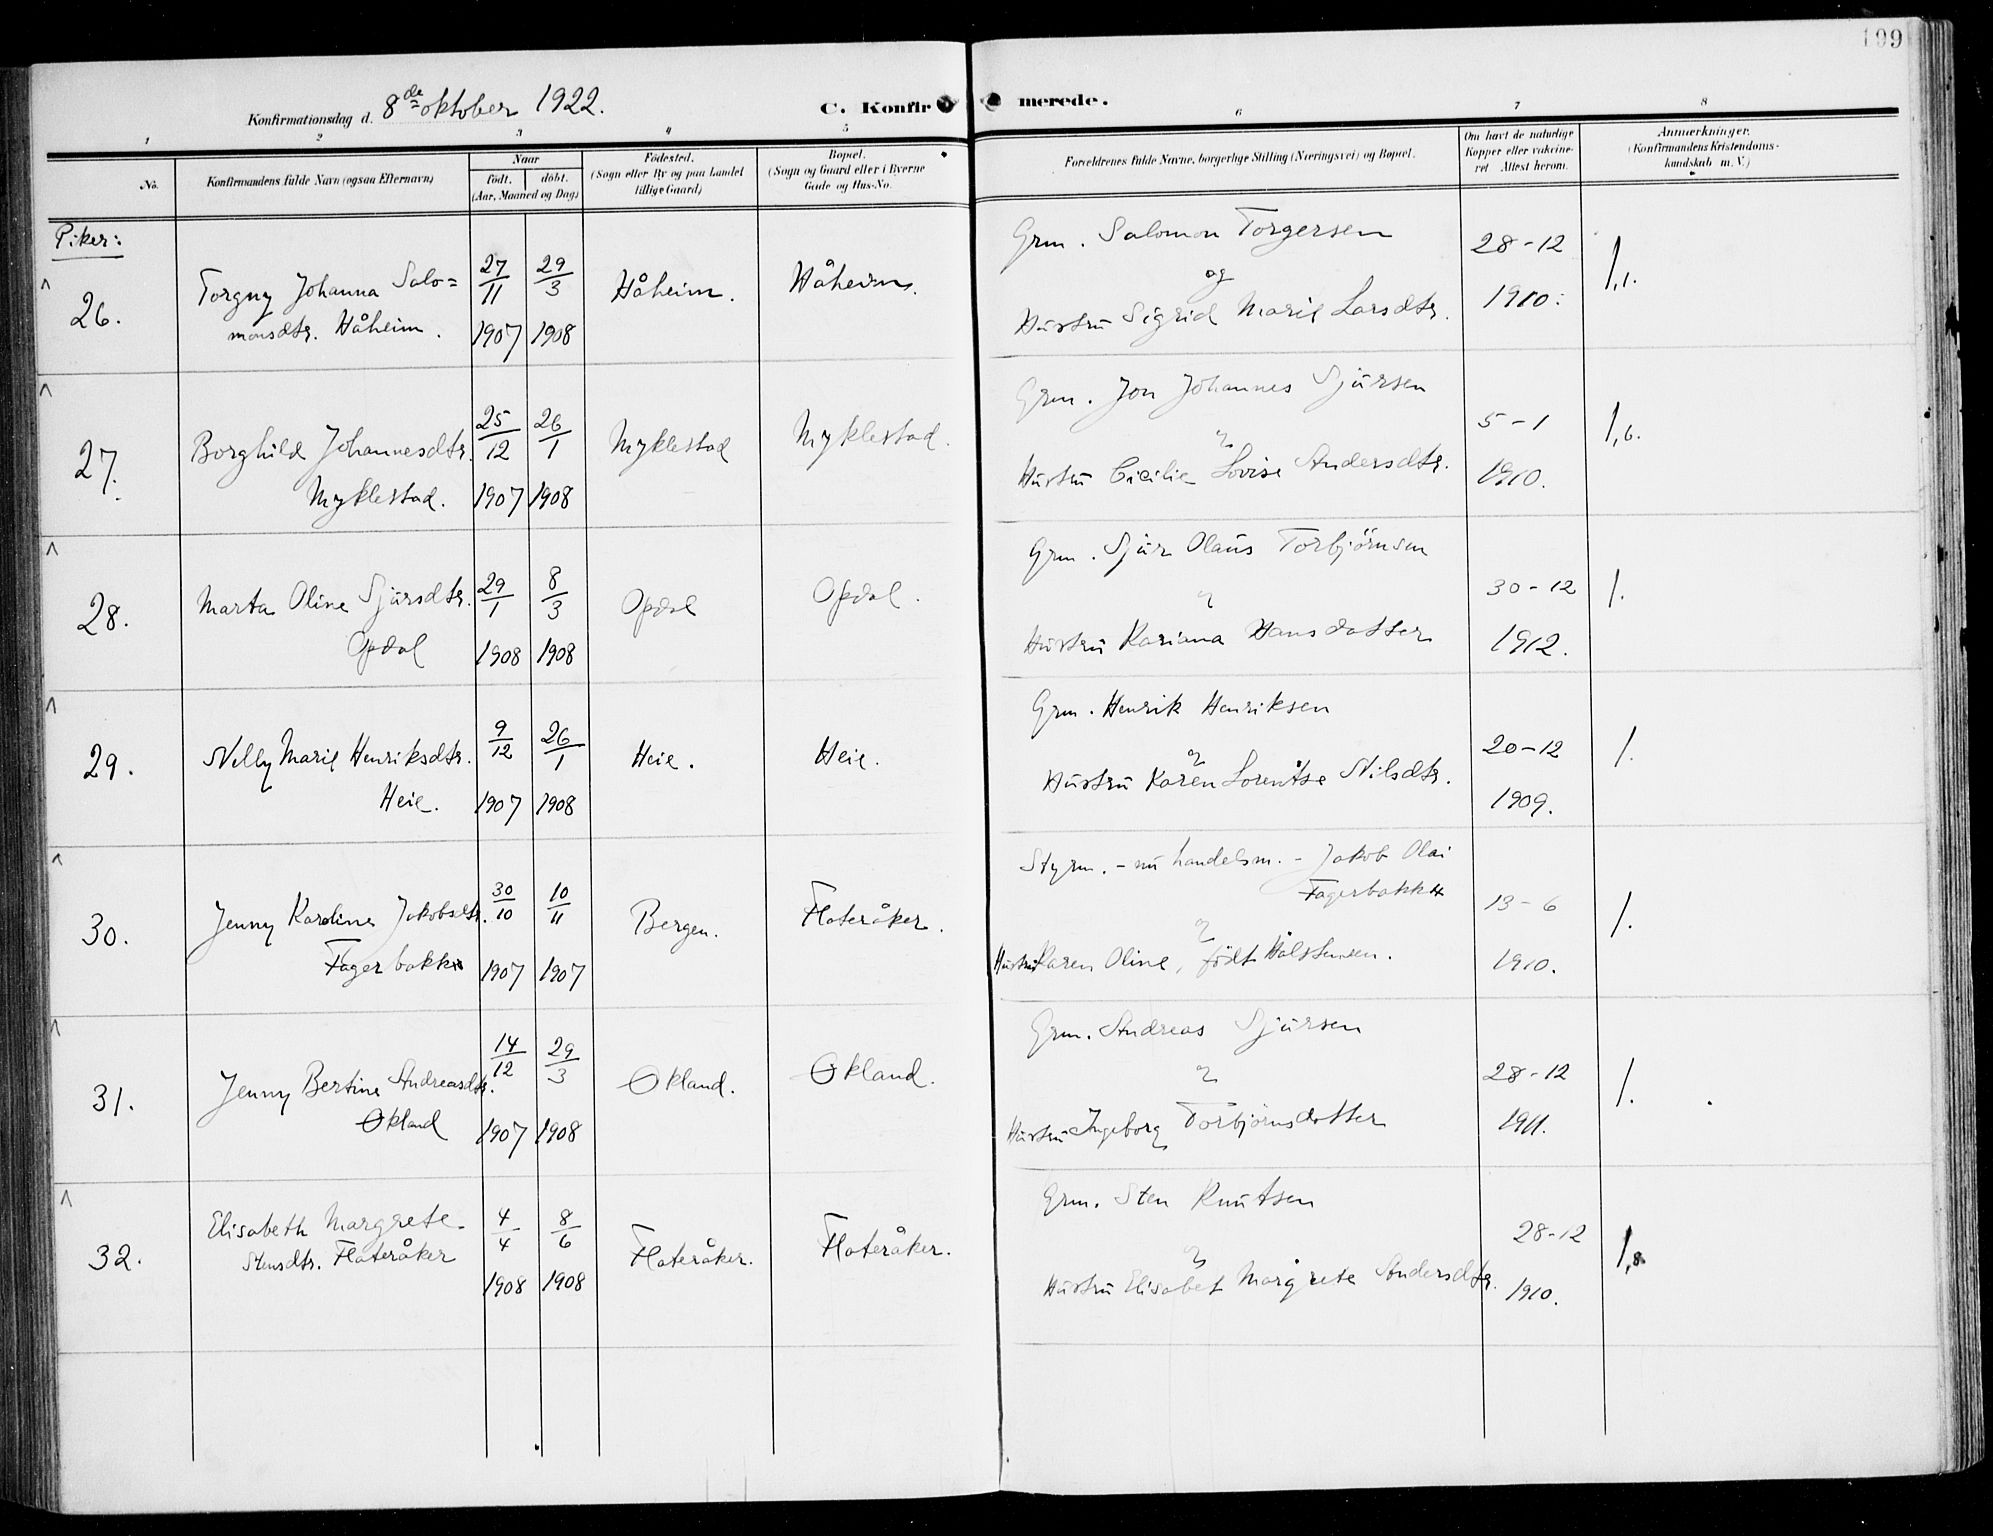 199
Konfirmationsdag d. 8de oktober 1922.
C. Konfirmerede.
1 2 3 4 5 6 7 8
No.
Konfirmandens fulde Navn (ogsaa Efternavn)
Naar
født. døbt.
(Aar, Maaned og Dag)
Fødested.
(Sogn eller By og paa Landet
tillige Gaard)
Bopæl.
(Sogn og Gaard eller i Byerne
Gade og Hus-No.
Forældrenes fulde Navne, borgerlige Stilling (Næringsvei) og Bopæl.
Om havt de naturlige
Kopper eller vakcine-
ret Attest herom.
Anmerkninger.
(Konfirmandens Kristendoms-
kundskab m. V.)
Piker:
26.
Torgny Johanna Salo=
monsdtr. Håheim.
27/11 1907
29/3 1908
Håheim.
Håheim.
Grm. Salomon Torgersen
og
Hustru Sigrid Marie Larsdtr.
28-12
1910.
1,1.
27.
Borghild Johannesdtr.
Myklestad.
25/12 1907
26/1 1908
Myklestad
Myklestad.
Grm. Jon Johannes Sjursen
Hustru Cicilie Lovise Andersdtr.
5-1
1910.
1,6.
28.
Marta Oline Sjursdtr.
Opdal
29/1 1908
8/3 1908
Opdal
Opdal.
Grm. Sjur Olaus Torbjörnsen
Hustru Kariana Hansdotter
30-12
1912.
1.
29.
Nelly Marie Henriksdtr.
Heie.
9/12 1907
26/1 1908
Heie.
Heie.
Grm. Henrik Henriksen
Hustru Karen Lorentse Nilsdtr.
20-12
1909.
1.
30.
Jenny Karoline Jakobsdtr.
Fagerbakke
30/10 1907
10/11 1907
Bergen.
Flateråker.
Styrm. - nu handelsm. - Jakob Olai
Fagerbakke
Hustru Karen Oline, født
13-6
1910.
1.
31.
Jenny Bertine Andreasdtr.
Økland
14/12 1907
29/3 1908
Økland.
Økland.
Grm. Andreas Sjursen
Hustru Ingeborg Torbjörnsdotter
28-12
1911.
1.
32.
Elisabeth Margrete
Stensdtr. Flateråker
4/4 1908
8/6 1908
Flateråker.
Flateråker.
Grm. Sten Knutsen
Hustru Elisabet Margrete Andersdtr.
28-12
1910.
1,8.